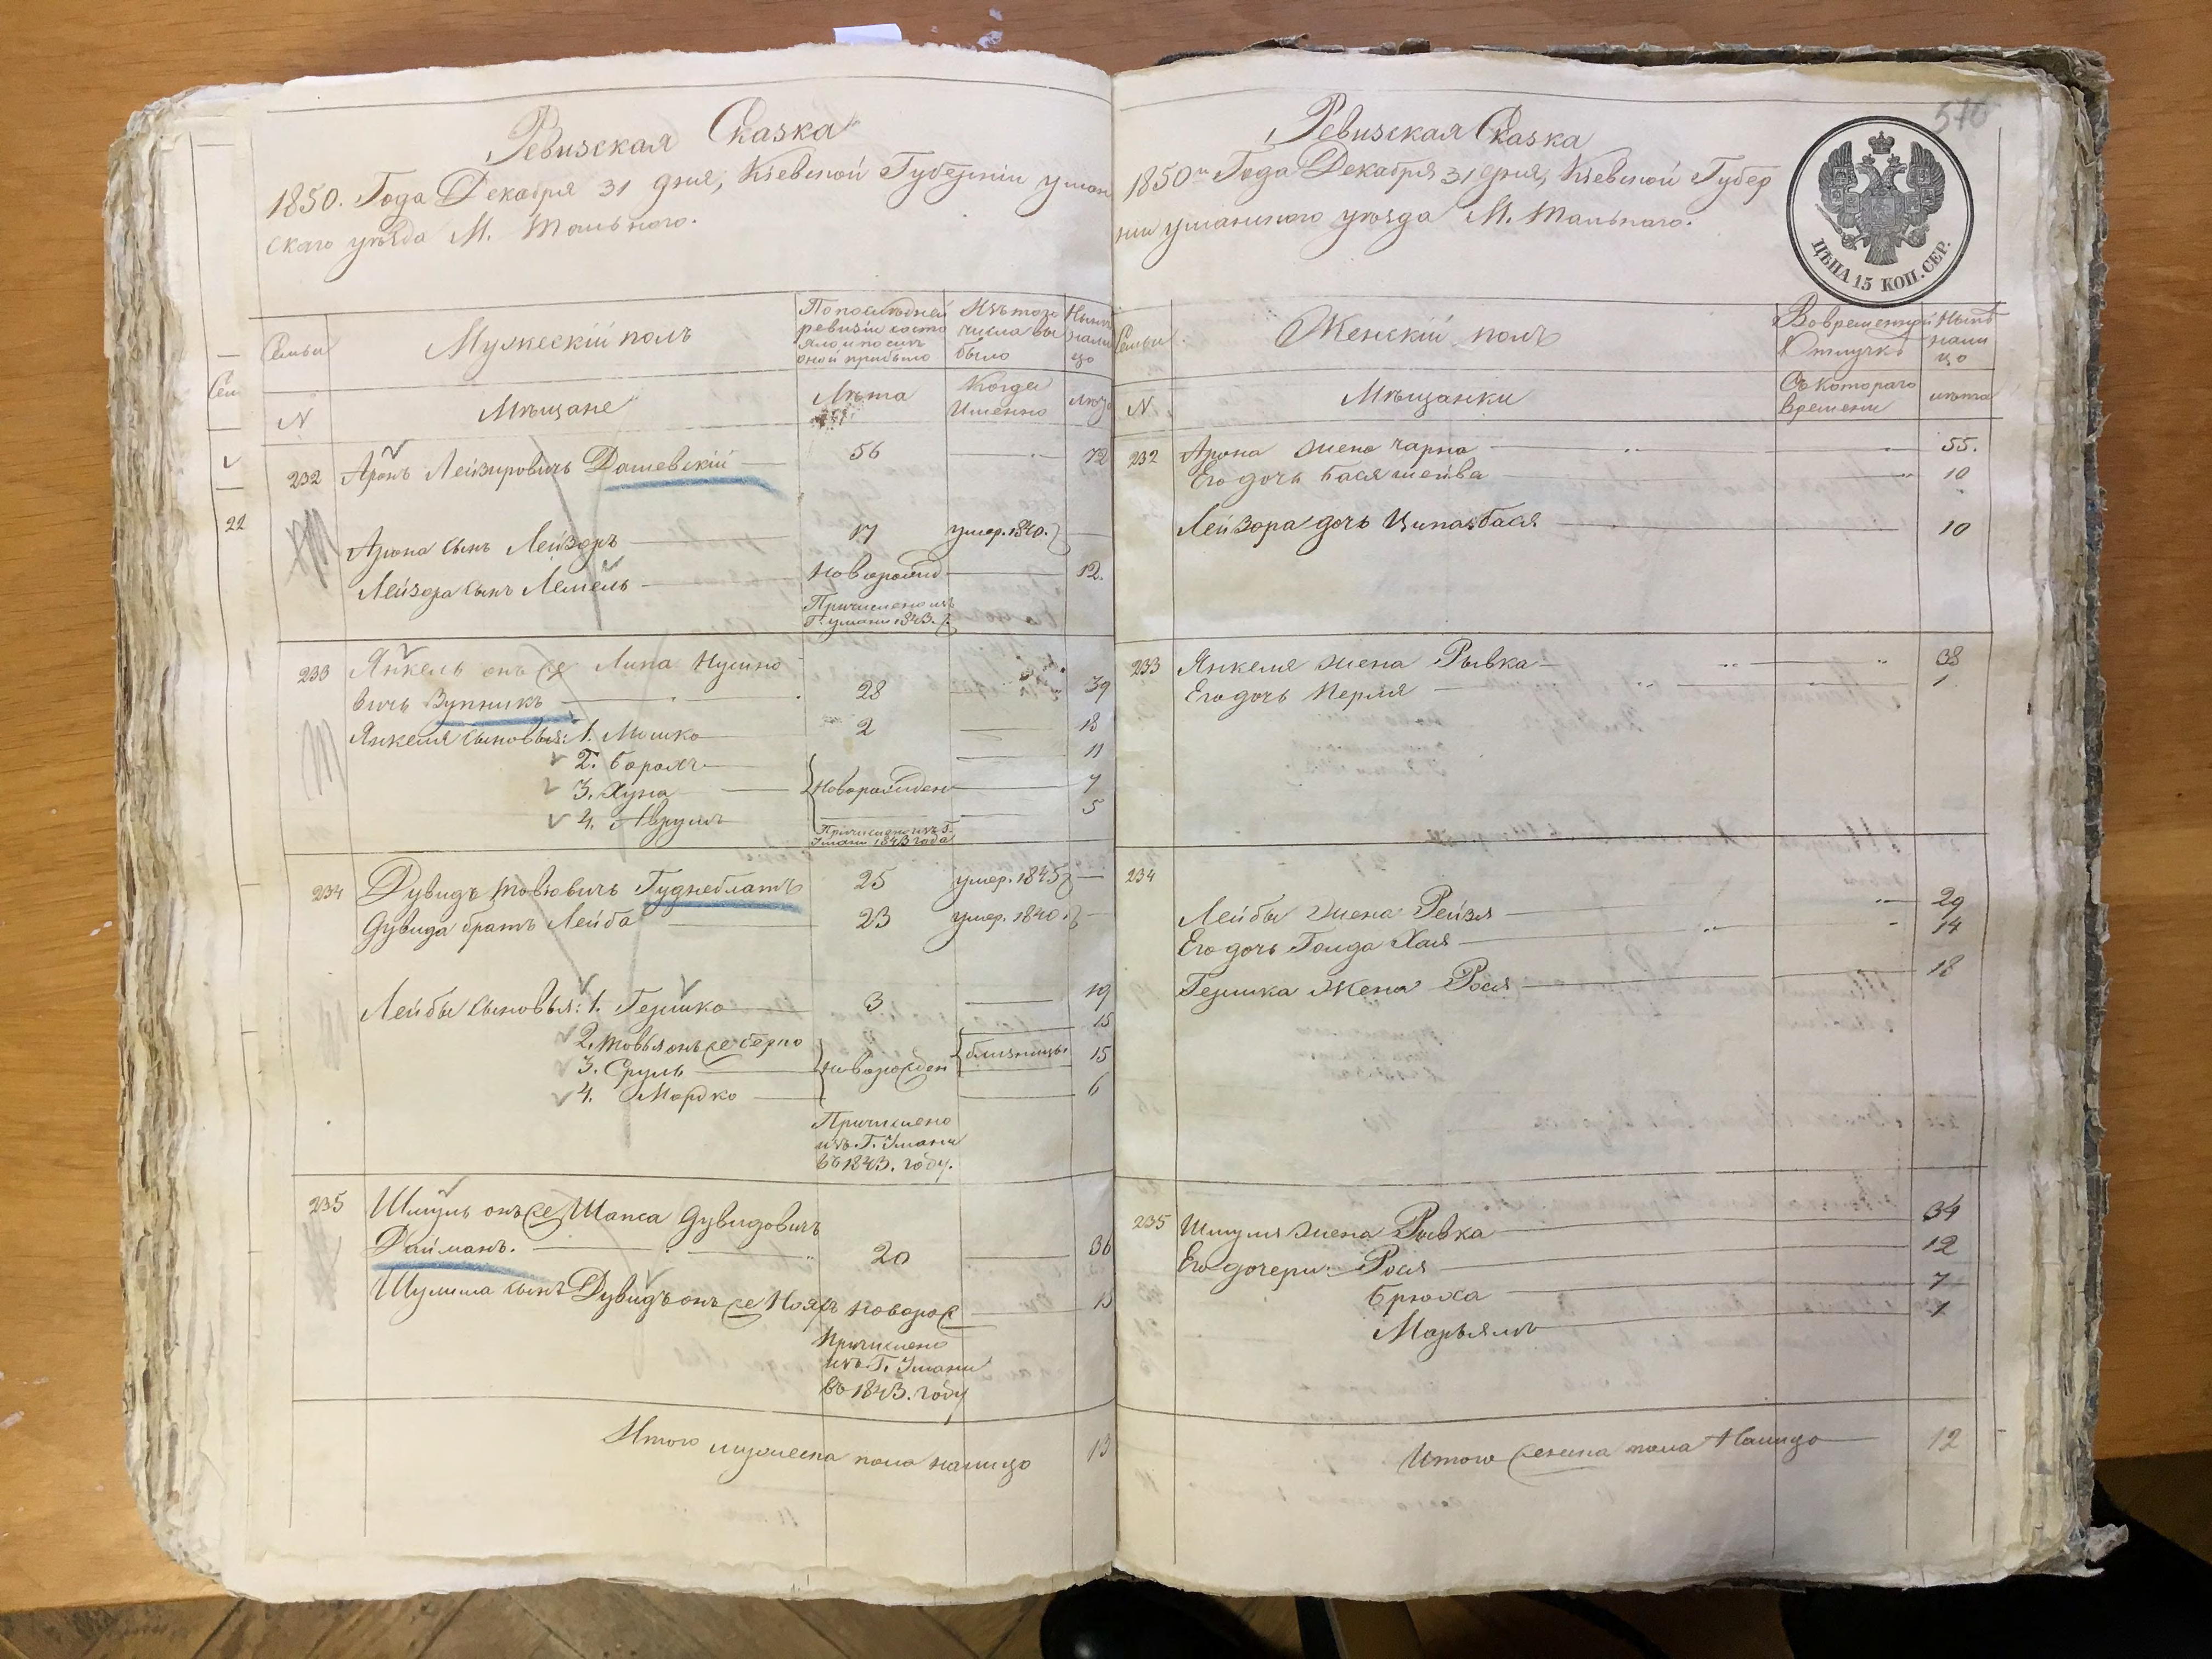 Ревизская Сказка
1850. Года Декабря 31 дня, Кіевской Губерніи уман
скаго уѣзда М. Тального.
Семьи
Мужескій полъ
По последней
ревизіи состо
яло и после
оной прибыло
Изъ того
числа вы
было
Нынѣ
нали
цо
N
Мѣщане
Лѣта
Когда
Именно
лѣта
232 Аронъ Лейзировичъ Дашевскій 56 72
Арона сынъ Лейзоръ 17 умер. 1840.
Лейзора сынъ Лемель новорожд 12.
Причислено изъ
Г. умани 1843.
233 Янкель онъ же Липа Нусино
вичъ Вупникъ 28 39
Янкеля сыновья: 1. Мошко 2 18
2. Борохъ 11
3. Хуна новорожден 7
4. Аврумъ 5
Причислено изъ Г.
Умани 1843 года
234 Дувидъ Товіовичъ Гуднеблатъ 25 умер. 1845
Дувида братъ Лейба 23 умер. 1840.
Лейбы сыновья: 1. Гершко 3 19
2. Товья онъ же Берко 15
3. Сруль новорожден близнецы 15
4. Мордко 6
Причислено
изъ Г. Умани
въ 1843. году.
235 Шмуль онъ же Шапса Дувидовичъ
Файманъ. 20 36
Шумила сынъ Дувидъ онъ же Нояхъ новорож 15
Причислено
изъ Г. Умани
въ 1843. году
Итого мужеска пола налицо 13
Сем
22
570
Ревизская Сказка
1850го Года Декабря 31 дня, Кіевской Губер
ніи уманского уѣзда М. Тального.
ЦѢНА 15 КОП. СЕР.
Семьи
Женскій полъ
Во временной
Отлучкѣ
Нынѣ
нали
цо
N
Мѣщанки
Съ котораго
Времени
лѣта
232 Арона жена Чарна 55.
Его дочь Бася шейва 10
Лейзора дочь Ципа Бася 10
233 Янкеля жена Рывка 38
Его дочь Перля 1
234
Лейбы жена Рейзя 29
Его дочь Голда Хая 14
Гершка жена Рося 18
235 Шмуля жена Рывка 34
Его дочери: Рося 12
Брюха 7
Марьямъ 1
Итого женска пола Налицо 12